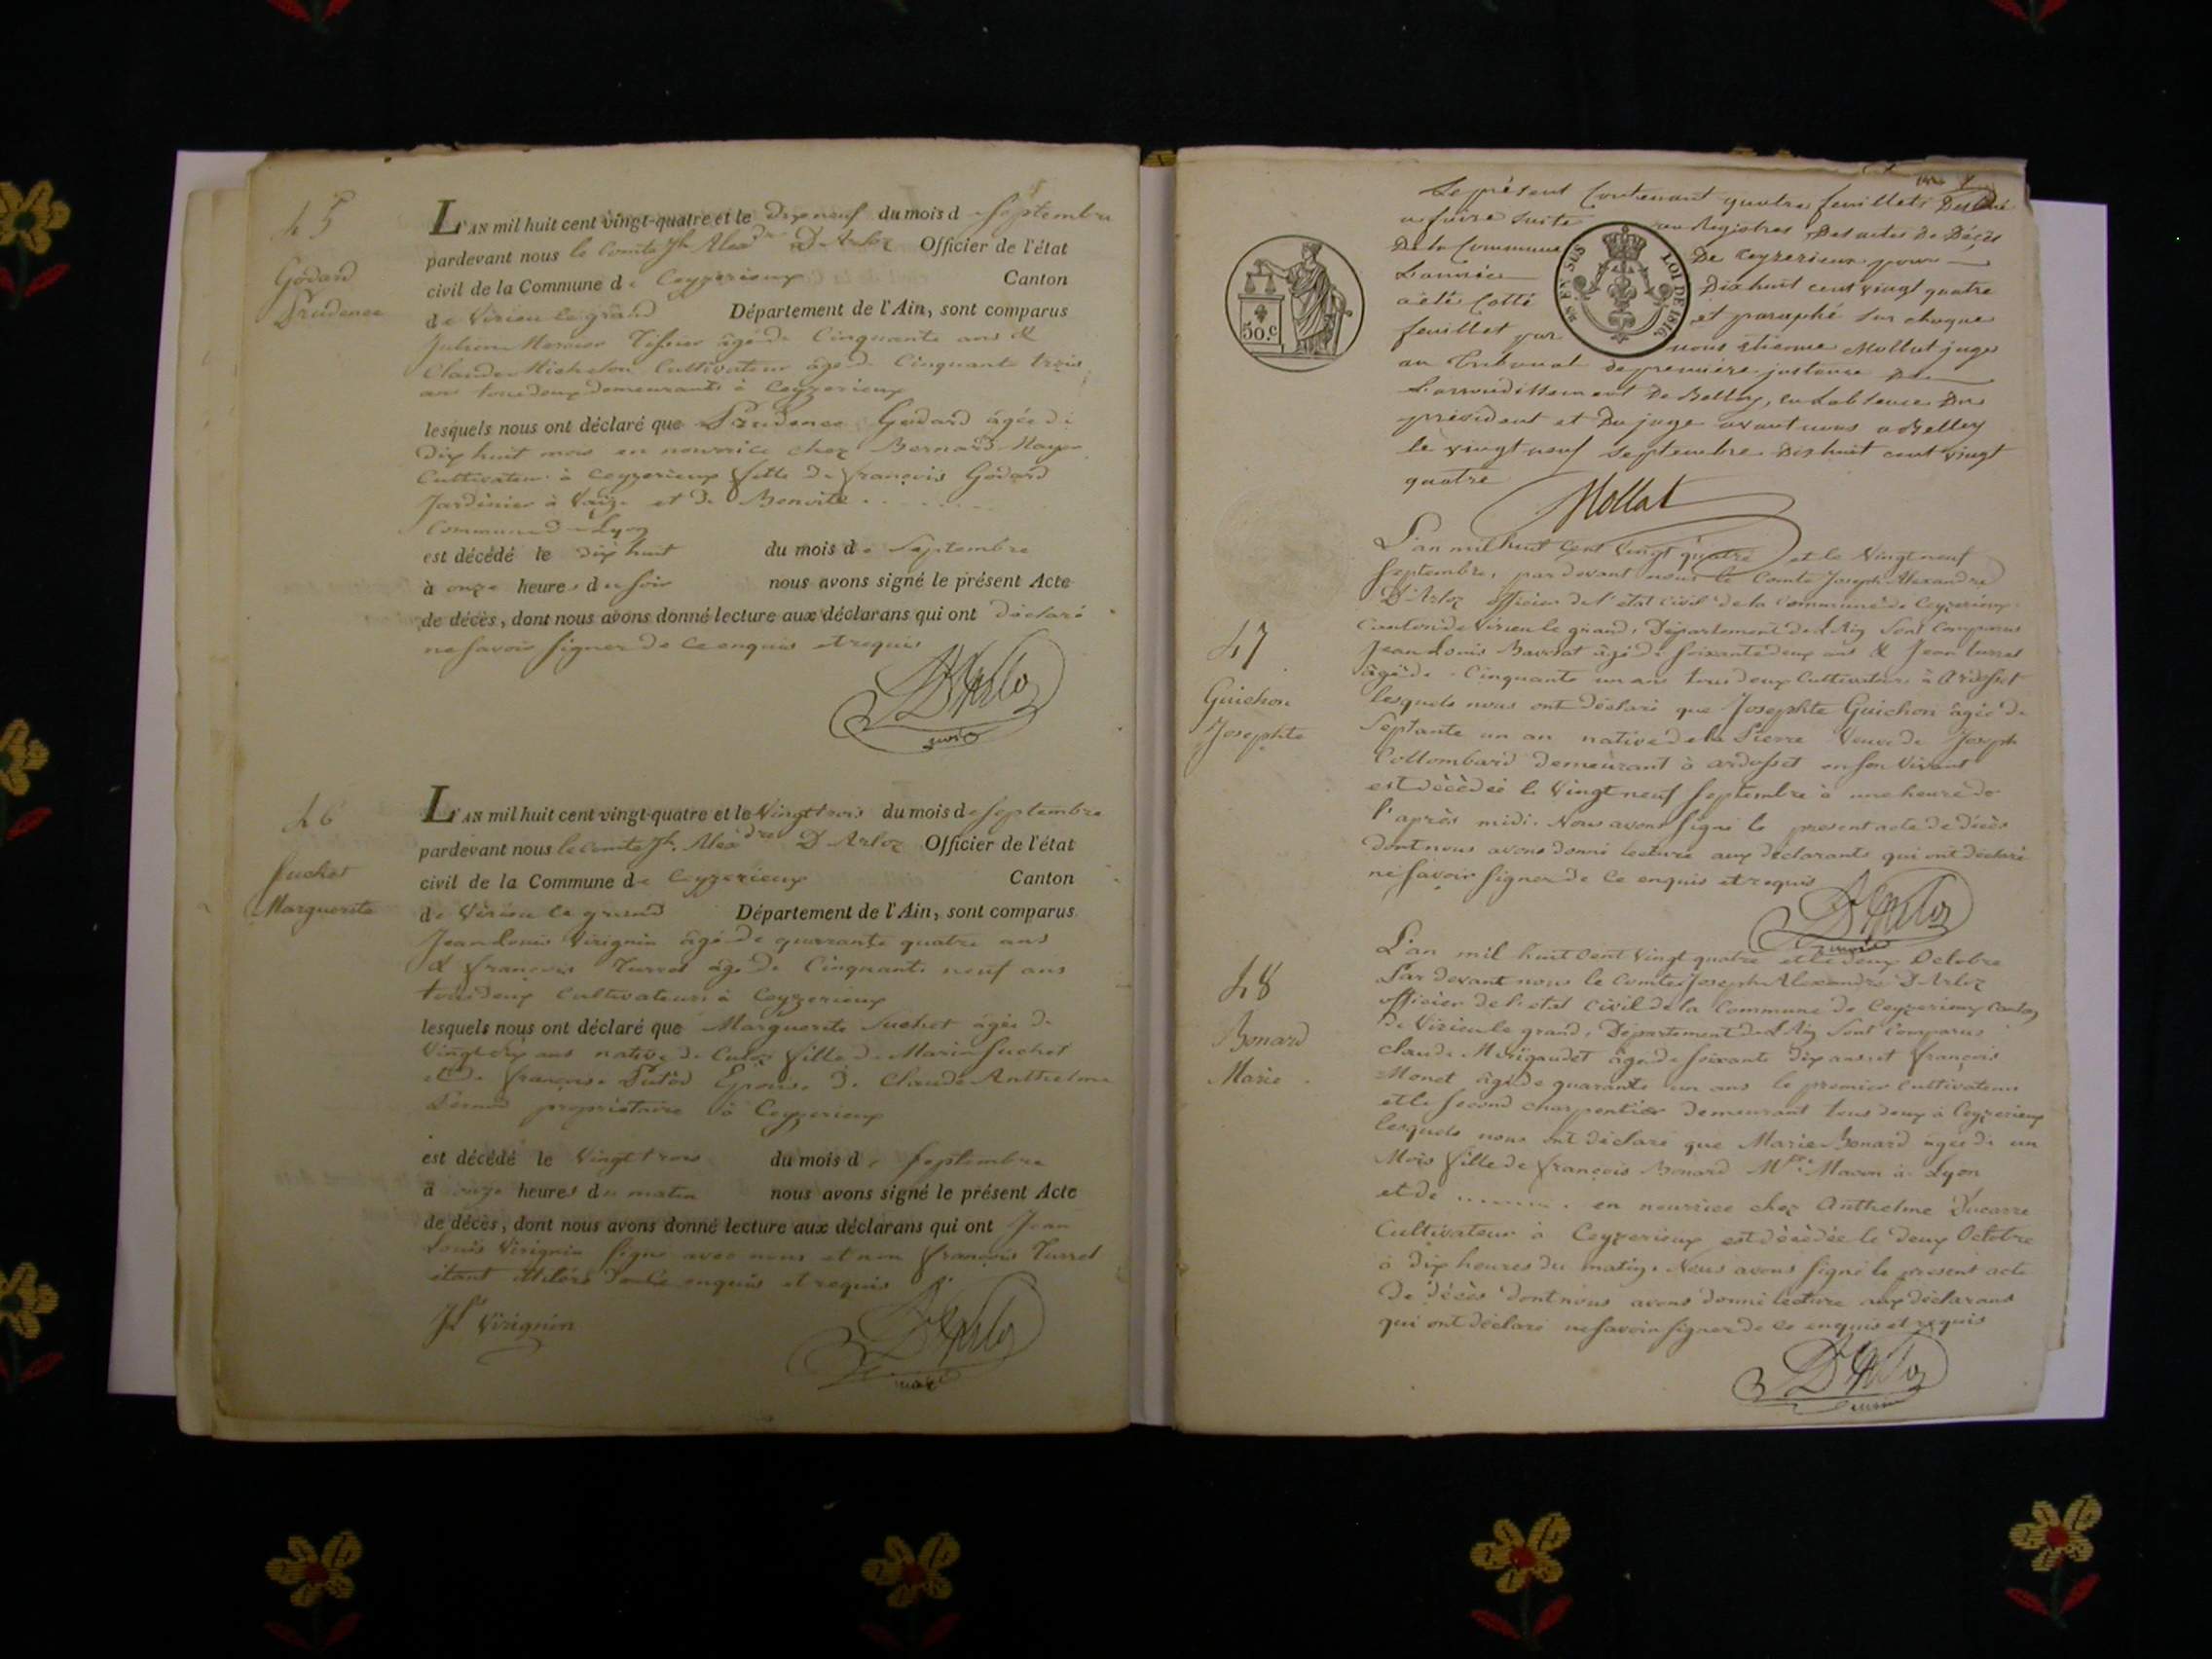 45
Godard
Prudence
L'AN mil huit cent vingt-quatre et le dix neuf du mois d septembre
pardevant nous le Comte Jh Alexdre D'Arloz Officier de l'état
civil de la Commune de Ceyzerieux Canton
de Virieu le grand Département de l'Ain, sont comparus
Julien Mercier Tissier âgé de Cinquante ans &
Claude Michelon Cultivateur âgé de Cinquante trois
ans tous deux demeurants à Ceyzerieux
lesquels nous ont déclaré que Prudence Godard âgée de
dix huit mois en nourrice chez Bernard
Cultivateur à Ceyzerieux fille de françois Godard
Jardinier à Vaize et de Benoite . . . . . .
Commune de Lyon
est décédé le dix huit du mois de Septembre
à onze heures du soir nous avons signé le présent Acte
de décès, dont nous avons donné lecture aux déclarans qui ont déclaré
ne savoir signer de ce enquis et requis
D'Arloz
maire
46
Suchet
Marguerite
L'AN mil huit cent vingt-quatre et le Vingt trois du mois de septembre
pardevant nous le Comte Jh. Alexdre D'Arloz Officier de l'état
civil de la Commune de Ceyzerieux Canton
de Virieu le grand Département de l'Ain, sont comparus
Jean Louis Virignin âgé de quarrante quatre ans
& françois Turrel âgé de Cinquante neuf ans
tous deux Cultivateurs à Ceyzerieux
lesquels nous ont déclaré que Marguerite Suchet âgée de
Vingt six ans native de Culoz fille de Marin Suchet
et de françoise Epouse de Claude Anthelme
propriétaire à Ceyzerieux
est décédé le Vingt trois du mois de septembre
à onze heures du matin nous avons signé le présent Acte
de décès, dont nous avons donné lecture aux déclarans qui ont Jean
Louis Virignin signé avec nous et non françois Turrel
étant illitéré de ce enquis et requis
Jl Virignin
D'Arloz
maire
Le présent Contenant quatre feuillets Destiné
a faire suite au Registres Des actes De Décès
De la Commune De Ceyzerieux pour
L'année Dixhuit cent vingt quatre
a été Cotté et paraphé sur chaque
feuillet par nous Etienne Mollat juge
au Tribunal de premiere instance De
L'arrondissement De Belley, en Labsence Du
président et Du juge avant nous a Belley
le vingt neuf Septembre Dixhuit cent vingt
quatre
Mollat
50.C
EN SUS
LOI DE 1816.
47
Guichon
Josephte
L'an mil huit Cent Vingt quatre et le Vingt neuf
Septembre, par devant nous le Comte Joseph Alexandre
D'Arloz officier de l'état civil de la Commune de Ceyzerieux
Canton de Virieu le grand, Département de L'Ain sont comparus
Jean Louis âgé de soixante deux ans & Jean Turrel
âgé de Cinquante un ans tous deux Cultivateurs à Ardosset
lesquels nous ont déclaré que Josephte Guichon âgée de
Septante un an native de la Pierre Veuve de Joseph
Collombard demeurant à ardosset en son Vivant
est décédée le Vingt neuf Septembre à une heure de
l'après midi. Nous avons signé le présent acte de décès
dont nous avons donné lecture aux déclarants qui ont déclaré
ne savoir signer de ce enquis et requis
D'Arloz
maire
48
Bonard
Marie
L'an mil huit Cent Vingt quatre et le deux Octobre
Par devant nous le Comte Joseph Alexandre D'Arloz
officier de l'état Civil de la Commune de Ceyzerieux Canton
de Virieu le grand, Département de L'Ain sont Comparus
Claude Marigaudet âgé de soixante dix ans et françois
Monet âgé de quarante un ans le premier Cultivateur
et le second charpentier demeurant tous deux à Ceyzerieux
lesquels nous ont déclaré que Marie Bonard âgée de un
Mois fille de françois Bonard Mtre Macon à Lyon
et de . . . . . . . . . en nourrice chez Anthelme Ducarre
Cultivateur à Ceyzerieux est décédée le deux Octobre
à dix heures du matin. Nous avons signé le présent acte
de décès dont nous avons donné lecture aux déclarans
qui ont déclaré ne savoir signer de ce enquis et requis
D'Arloz
maire